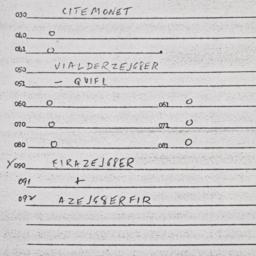 030 CITEMONET
040 0
041 0
050 VIALDERZEJGBER
051 - QVIFL
060 0 061 0
070 0 071 0
080 0 081 0
090 FIRAZEJGBER
091 +
092 AZEJGBERFIR